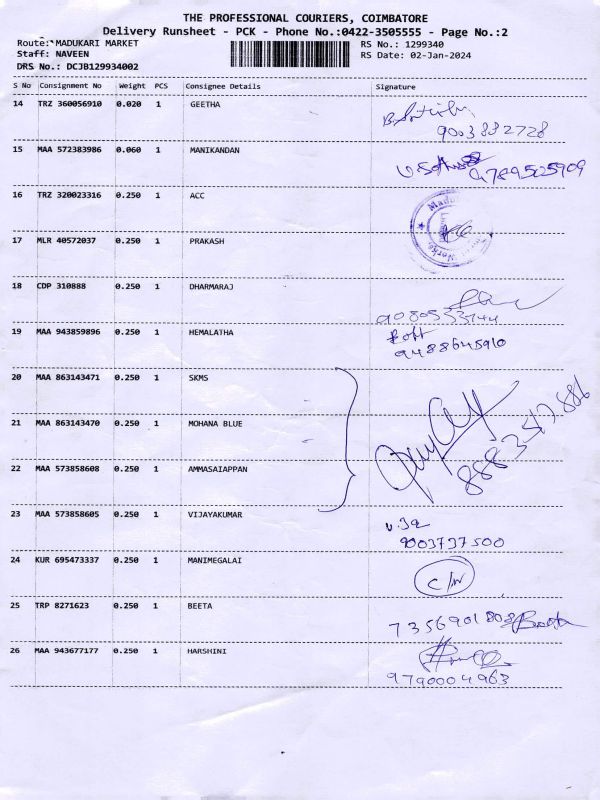 THE PROFESSIONAL COURIERS, COIMBATORE
Delivery Runsheet - PCK - Phone No.:0422-3505555 - Page No.:2
Route: MADUKARI MARKET
Staff: NAVEEN
DRS No.: DCJB129934002
RS No.: 1299340
RS Date: 02-Jan-2024
S No Consignment No Weight PCS Consignee Details Signature
14 TRZ 360056910 0.020 1 GEETHA
9003832728
15 MAA 572383986 0.060 1 MANIKANDAN
9789525909
16 TRZ 320023316 0.250 1 ACC
17 MLR 40572037 0.250 1 PRAKASH
18 CDP 310888 0.250 1 DHARMARAJ
9080533744
19 MAA 943859896 0.250 1 HEMALATHA
9488645910
20 MAA 863143471 0.250 1 SKMS
21 MAA 863143470 0.250 1 MOHANA BLUE
22 MAA 573858608 0.250 1 AMMASAIAPPAN
23 MAA 573858605 0.250 1 VIJAYAKUMAR
9003737500
24 KUR 695473337 0.250 1 MANIMEGALAI
C/N
25 TRP 8271623 0.250 1 BEETA
26 MAA 943677177 0.250 1 HARSHINI
9790004963